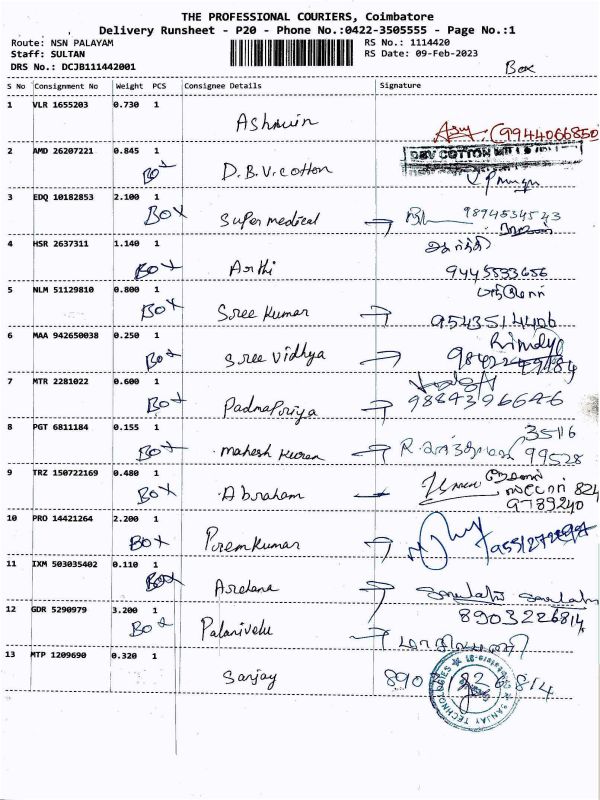 THE PROFESSIONAL COURIERS, Coimbatore
Delivery Runsheet - P20 - Phone No.:0422-3505555 - Page No.:1
Route: NSN PALAYAM RS No.: 1114420
Staff: SULTAN RS Date: 09-Feb-2023
DRS No.: DCJB111442001
Box
S No Consignment No Weight PCS Consignee Details Signature
1 VLR 1655203 0.730 1
Ashwin (9944066850)
2 AMD 26207221 0.845 1
Box D.B.V.cotton
3 EDQ 10182853 2.100 1
BOX Super medical 9894534543
4 HSR 2637311 1.140 1
Box Arthi 9445533656
5 NLM 51129810 0.800 1
BOX Sree kumar 9543514406
6 MAA 942650038 0.250 1
Box Sree Vidhya
7 MTR 2281022 0.600 1
Box Padmapriya 9884396646
8 PGT 6811184 0.155 1
35116
Box mahesh kumar 99528
9 TRZ 150722169 0.480 1
824
BOX Abraham 9789240
10 PRO 14421264 2.200 1
BOX Premkumar
11 IXM 503035402 0.110 1
Box Archana
12 GDR 5290979 3.200 1
8903226814
Box Palanivelu
13 MTP 1209690 0.320 1
Sanjay
SANJAY TECHNOLOGIES